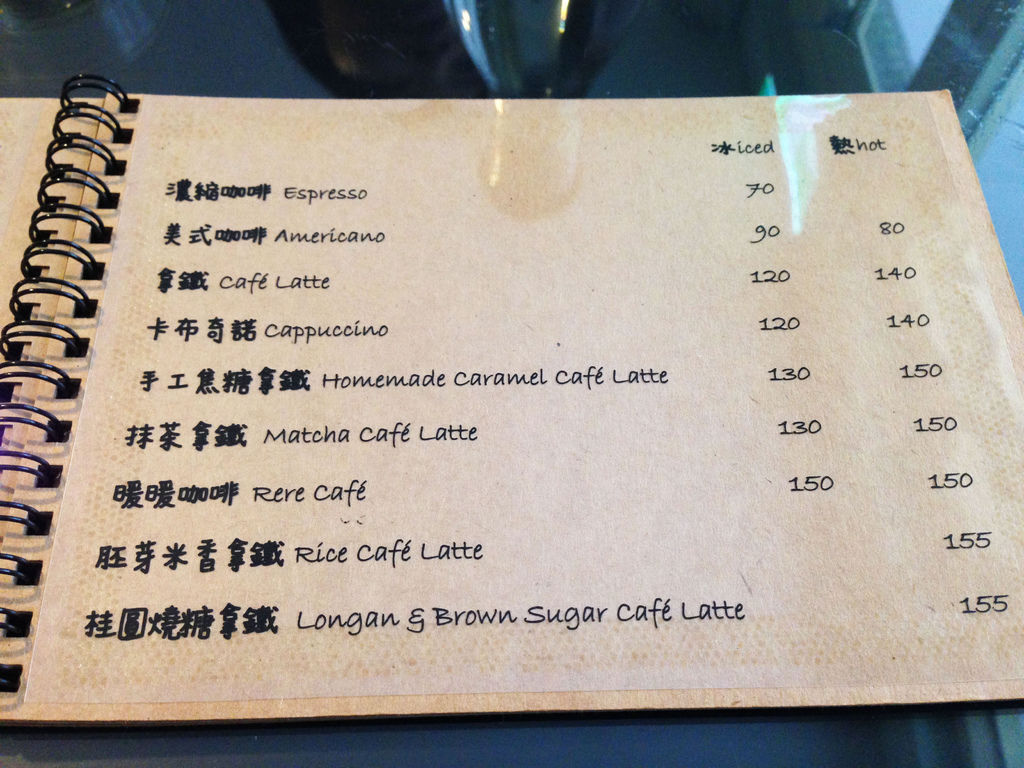 冰iced 熱hot
濃縮咖啡 Espresso 70
美式咖啡 Americano 90 80
拿鐵 Café Latte 120 140
卡布奇諾 Cappuccino 120 140
手工焦糖拿鐵 Homemade Caramel Café Latte 130 150
抹茶拿鐵 Matcha Café Latte 130 150
暖暖咖啡 Rere Café 150 150
胚芽米香拿鐵 Rice Café Latte 155
桂圓燒糖拿鐵 Longan & Brown Sugar Café Latte 155